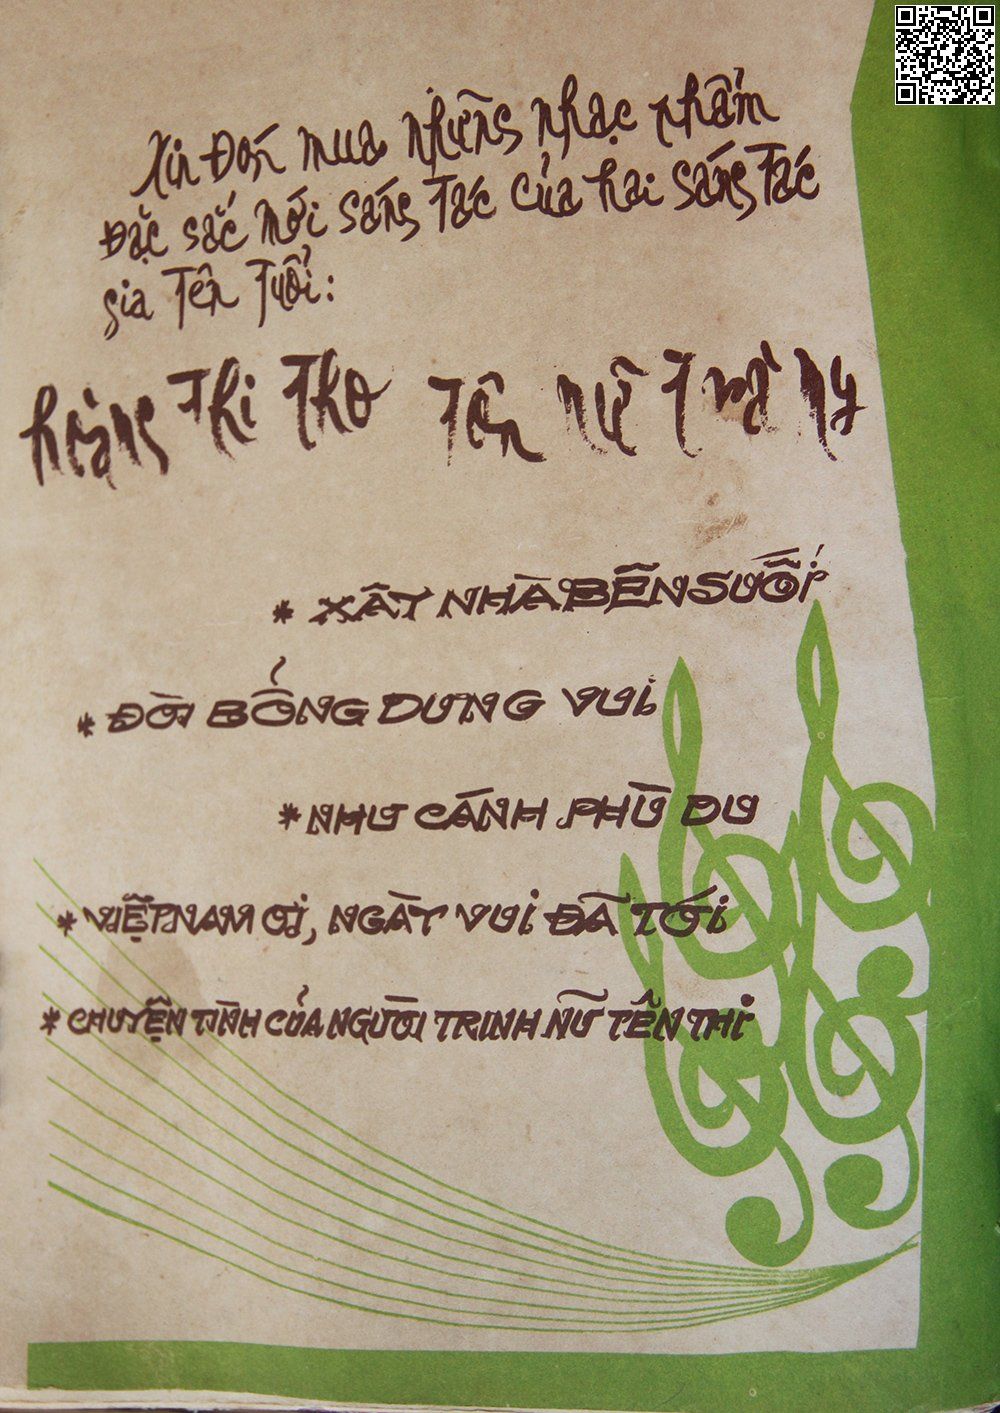 Xin Đón mua những nhạc phẩm
Đặc sắc mới sáng tác của hai sáng tác
gia tên tuổi:
hoàng thi thơ tôn nữ trà my
* XÂY NHÀ BÊN SUỐI
* ĐỜI BỖNG DƯNG VUI
* NHƯ CÁNH PHÙ DU
* VIỆTNAM ƠI, NGÀY VUI ĐÃ TỚI
* CHUYỆN TÌNH CỦA NGƯỜI TRINH NỮ TÊN THI